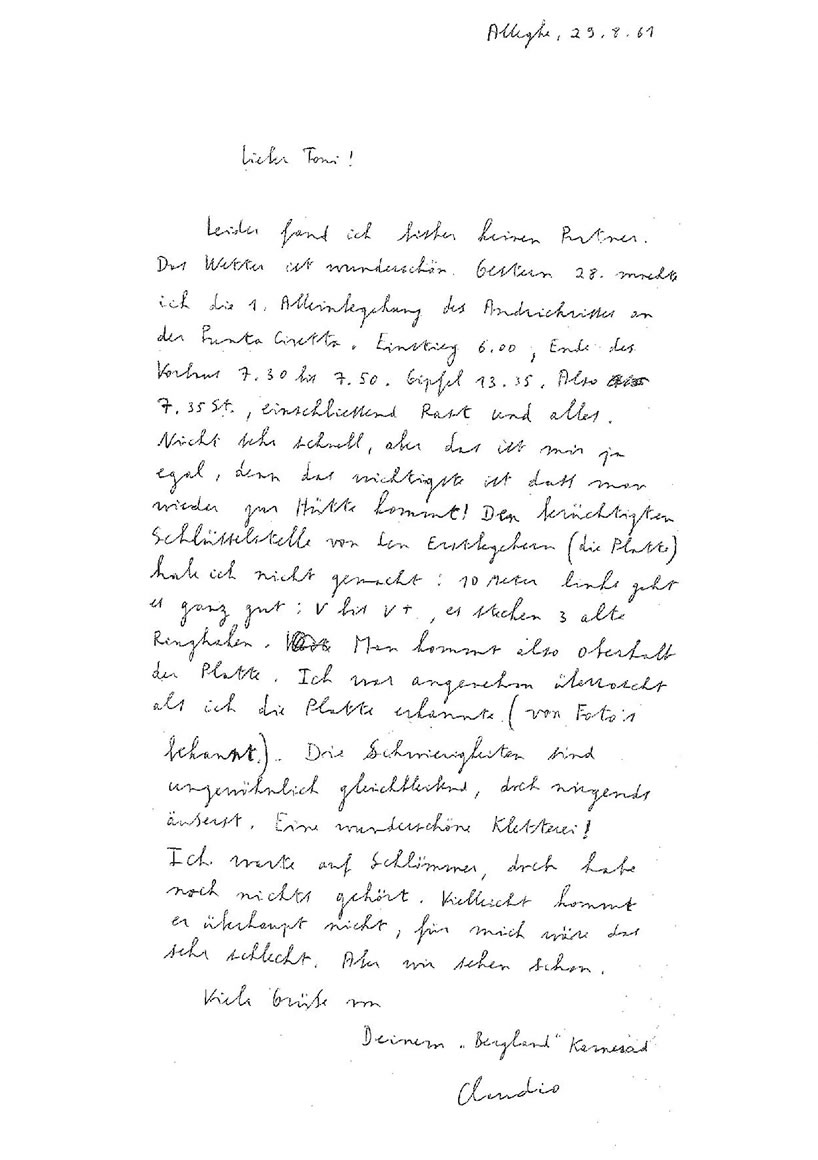 Alleghe, 29.8.61
Lieber Toni!
Leider fand ich bisher keinen Partner.
Das Wetter ist wunderschön. Gestern 28. machte
ich die 1. Alleinbegehung des Andrichrisses an
der Punta Civetta. Einstieg 6.00, Ende des
Vorbaus 7.30 bis 7.50. Gipfel 13.35. Also
7.35 St., einschliessend Rast und alles.
Nicht sehr schnell, aber das ist mir ja
egal, denn das wichtigste ist dass man
wieder zur Hütte kommt! Den berüchtigten
Schlüsselstelle von den Erstbegehern (die Platte)
habe ich nicht gemacht: 10 Meter links geht
es ganz gut: V bis V+, es stecken 3 alte
Ringhaken. Man kommt also oberhalb
der Platte. Ich war angenehm überrascht
als ich die Platte erkannte (von Foto's
bekannt). Die Schwierigkeiten sind
ungewöhnlich gleichbleibend, doch nirgends
äußerst. Eine wunderschöne Kletterei!
Ich warte auf Schlömmer, doch habe
noch nichts gehört. Vielleicht kommt
er überhaupt nicht, für mich wäre das
sehr schlecht. Aber wir sehen schon.
Viele Grüße von
Deinem „Bergland" Kamerad
Claudio